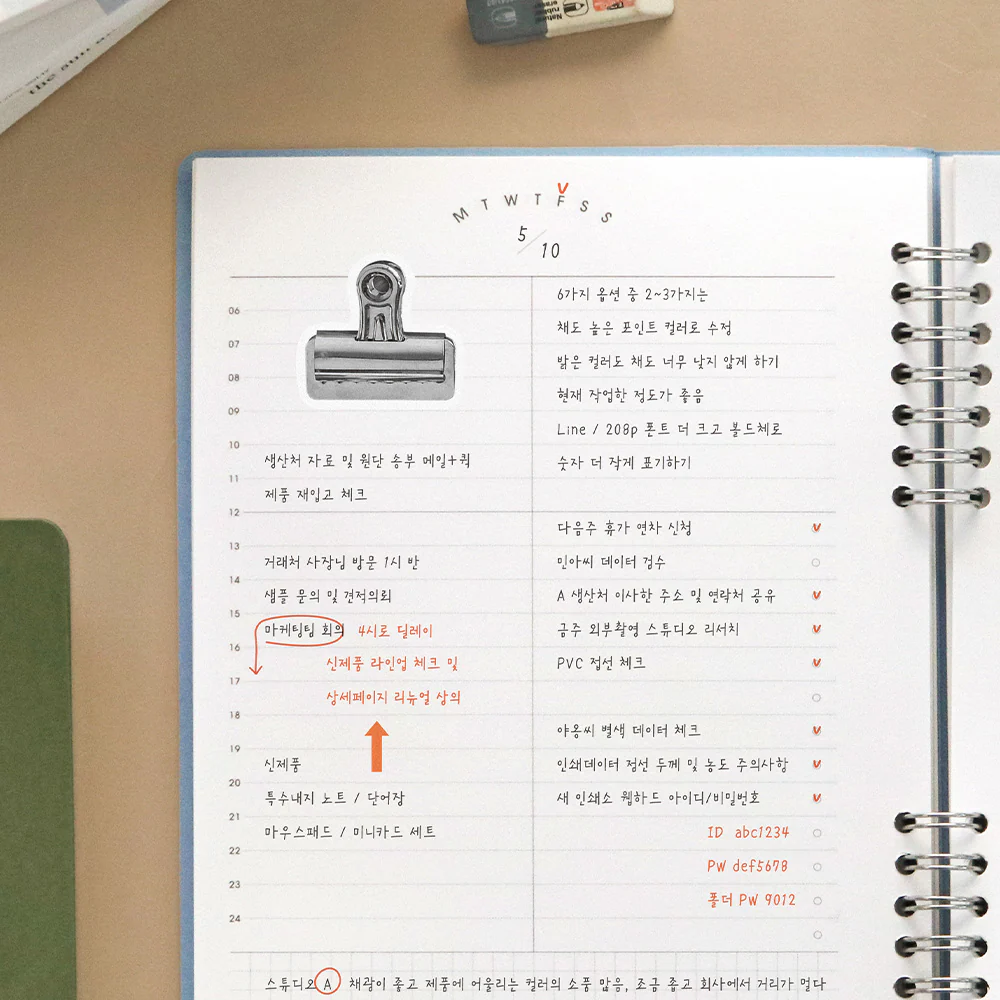 Natural
rubber
eraser
M T W T F S S
5/10
06
07
08
09
10
생산처 자료 및 원단 송부 메일+퀵
11
제품 재입고 체크
12
13
거래처 사장님 방문 1시 반
14
샘플 문의 및 견적의뢰
15
마케팅팀 회의 4시로 딜레이
16
신제품 라인업 체크 및
17
상세페이지 리뉴얼 상의
18
19
신제품
20
특수내지 노트 / 단어장
21
마우스패드 / 미니카드 세트
22
23
24
6가지 옵션 중 2~3가지는
채도 높은 포인트 컬러로 수정
밝은 컬러도 채도 너무 낮지 않게 하기
현재 작업한 정도가 좋음
Line / 208p 폰트 더 크고 볼드체로
숫자 더 작게 표기하기
다음주 휴가 연차 신청
민아씨 데이터 검수
A 생산처 이사한 주소 및 연락처 공유
금주 외부촬영 스튜디오 리서치
PVC 접선 체크
야옹씨 별색 데이터 체크
인쇄데이터 접선 두께 및 농도 주의사항
새 인쇄소 웹하드 아이디/비밀번호
ID abc1234
PW def5678
폴더 PW 9012
스튜디오 A 채광이 좋고 제품에 어울리는 컬러의 소품 많음, 조금 좁고 회사에서 거리가 멀다